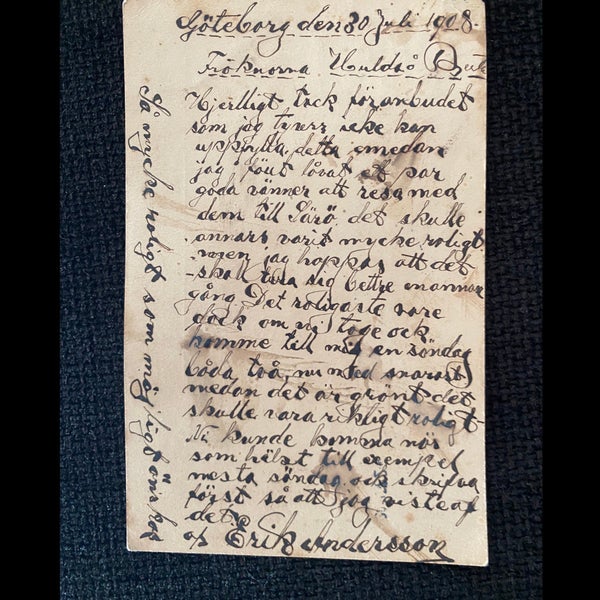 Göteborg den 30 Juli 1908.
Fröknorna Hulda o
Hjertligt tack för anbudet
som jag tyverr icke kan
uppfylla, detta emedan
jag föut låvat et par
goda vänner att resa med
dem till Särö det skulle
annars varit mycke roligt
men jag hoppas att det
skall te sig bettre annan
gång. Det roligaste vore
dock om ni toge ock
komme till mig en söndag
båda två, nu med snarast
medan det är grönt det
skulle vara riktigt roligt
Ni kunde komma när
som hälst till exempel
nesta söndag ock skrifva
först så att jag viste af
det.
af Erik Andersson
Så mycke roligt som möjligt önskas